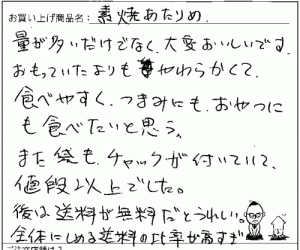 お買い上げ商品名：素焼あたりめ.
量が多いだけでなく、大変おいしいです。
おもっていたよりもやわらかくて、
食べやすく、つまみにも、おやつに
も食べたいと思う。
また袋も、チャックが付いていて、
値段以上でした。
後は送料が無料だとうれしい。
全体にしめる送料の比率が高すぎ